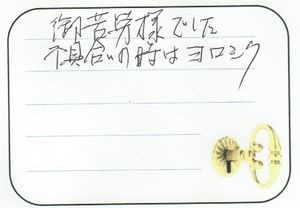 御苦労様でした
頃合いの時はヨロシク